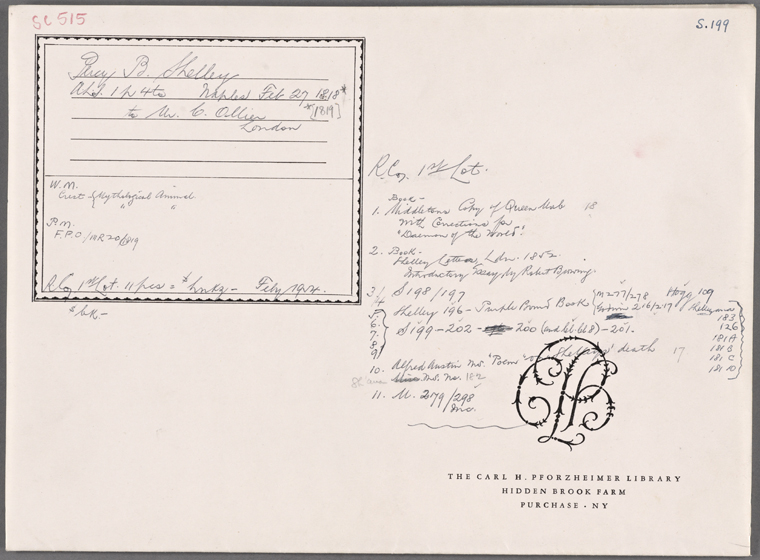 SC 515
S.199
Percy B. Shelley
ALS. 1 p. 4to Naples Feb 27 1818*
*[1819]
to Mr. C. Ollier
London
W.M.
Crest & Mythological Animal
" "
P.M.
F.P.O / MR 20 / 1819
R Co 1st Lot. 11 pcs = Feby 1924.
R. Co. 1st Lot.
Book -
1. Middletons Copy of Queen Mab 18
With Corrections for
"Daemon of the World".
2. Book -
Shelley Letters, Ldn. 1852.
Introductory Essay by Robert Browning.
3/4 S 198/197
Shelley 196 - Purple Bound Book { M 277/278 Hogg 109
216/217 Shelleyana
183
126
181 A
181 B
181 C
181 D
5.
6.
7.
8
9
S 199 - 202 - 200 (and bl. 668) - 201 -
10. Alfred Austin Ms. "Poem" on Shelleys' death 17
Ms. No. 182
11. M. 279/298
Inc.
THE CARL H. PFORZHEIMER LIBRARY
HIDDEN BROOK FARM
PURCHASE · NY